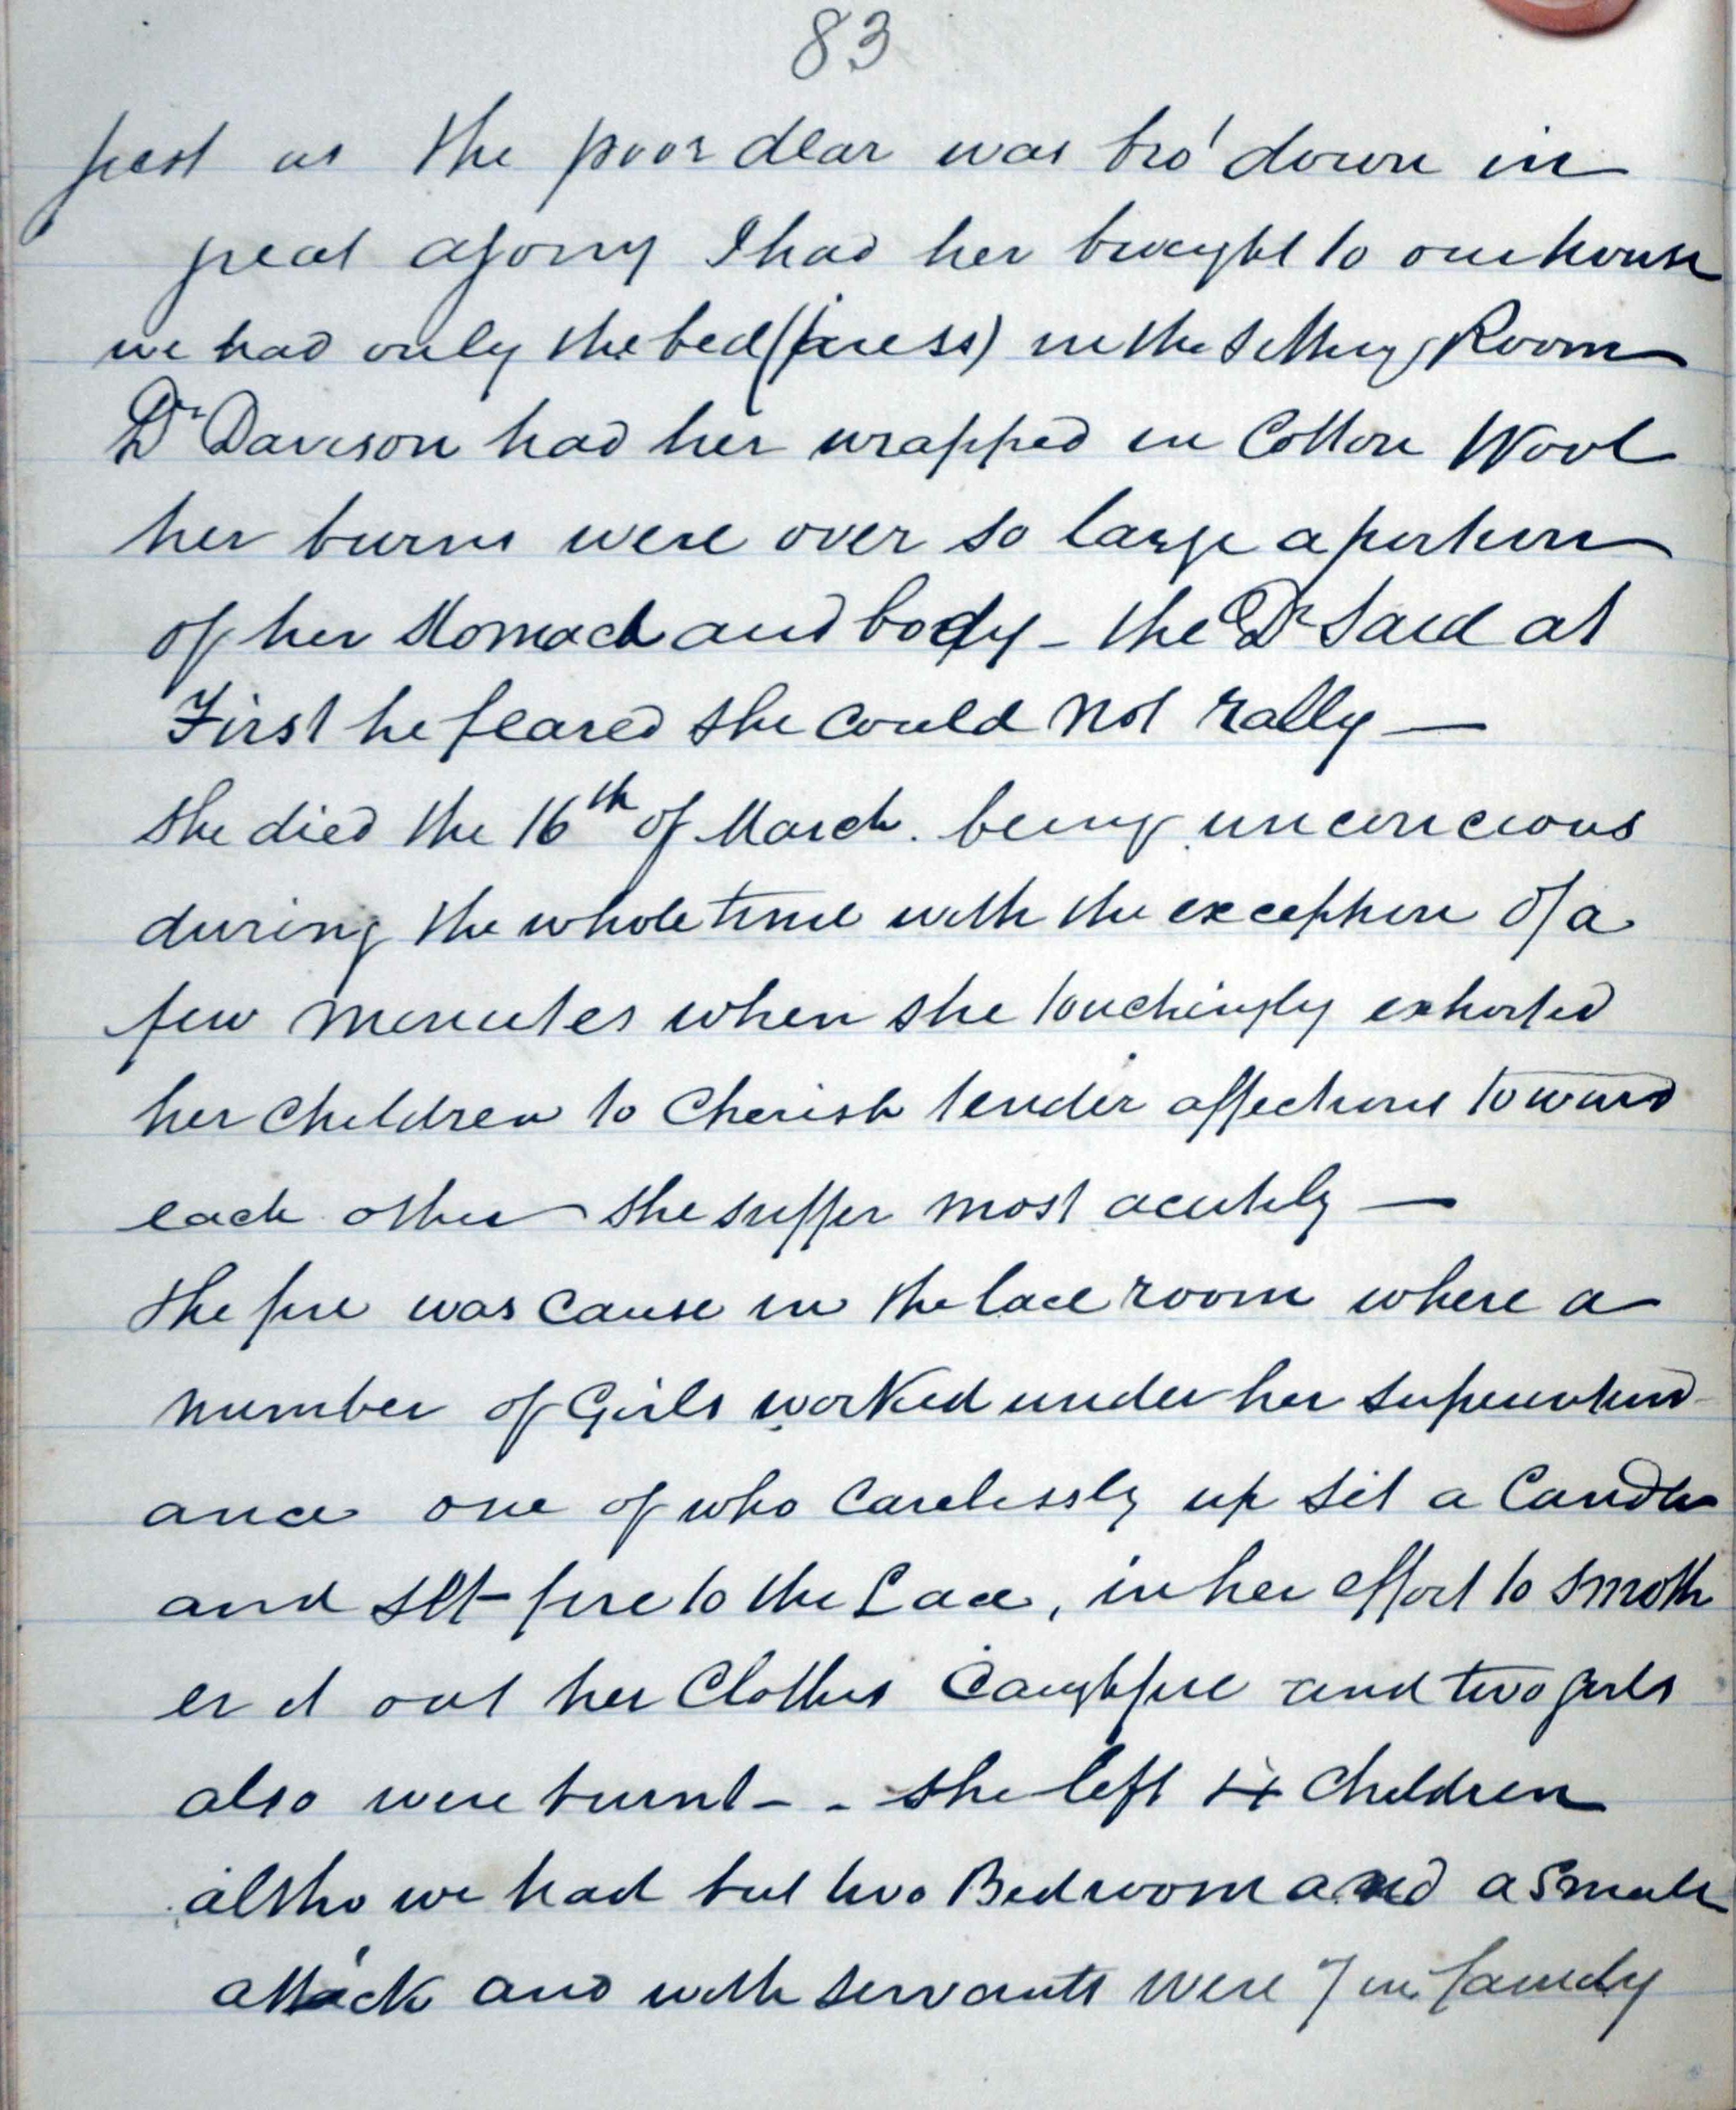 83
just as the poor dear was bro' down in
great agony I had her brought to our house
we had only the bed (press) in the Setting Room
Dr Davison had her wrapped in Cotton Wool
her burns were over so large a portion
of her Stomach and body - the Dr Said at
First he feared she could not rally —
She died the 16th of March. being unconcious
during the whole time with the exception of a
few minutes when she touchingly exhorted
her Children to Cherish tender affections toward
each other she suffer most acutely —
the fire was cause in the lace room where a
number of Girls worked under her superintend-
ance one of who Carelessly up set a Candle
and set fire to the Lace, in her effort to smoth
er it out her Clothes Caught fire and two girls
also were burnt - - she left 4 Children
altho we had but two Bedroom and a Small
attick and with servants were 7 in family